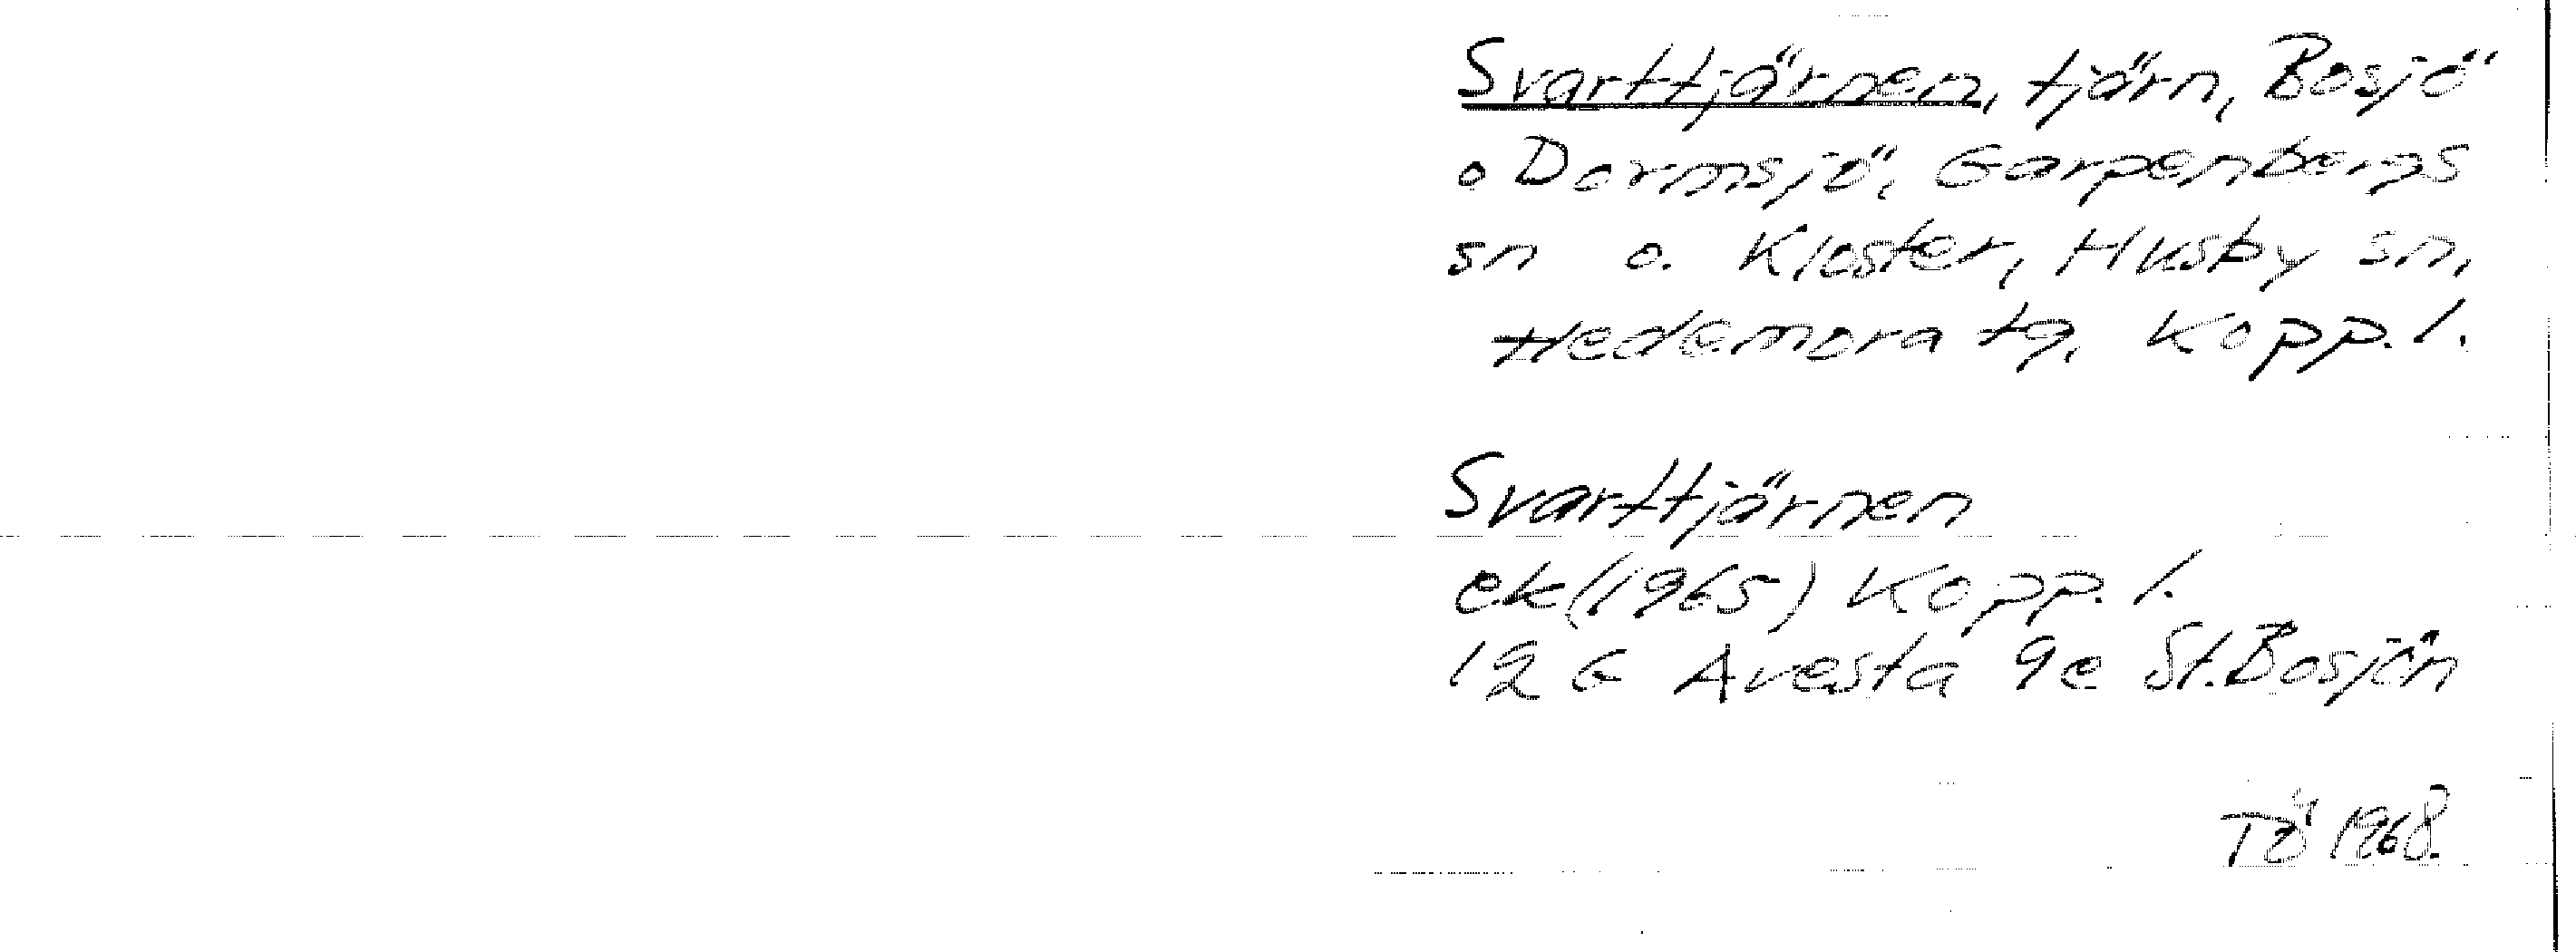 Svarttjärnen, tjärn, Bosjö
o Dormsjö, Garpenbergs
sn o. Kloster, Husby sn,
Hedemora tg, Kopp. l.
Svarttjärnen
ek (1965) Kopp. l.
12 G Avesta 9e St. Bosjön
TÖ 1968.